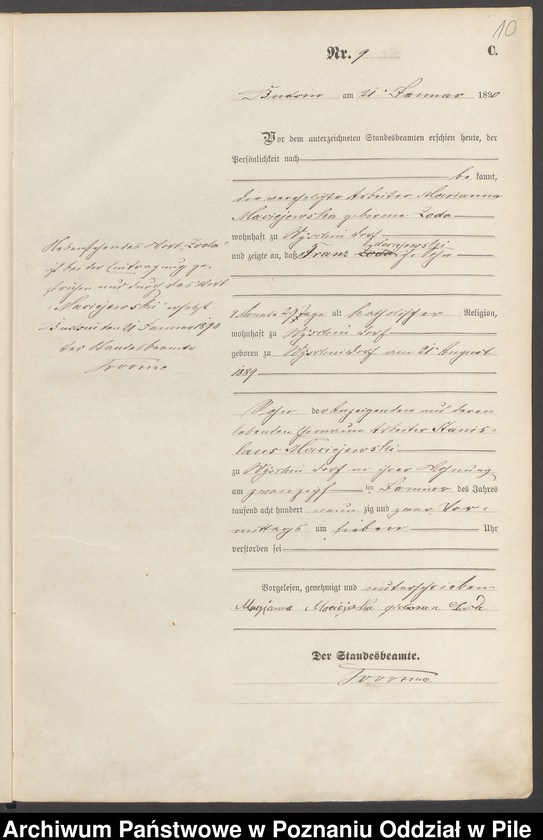 10
Nr. 9
C.
Budsin am 21. Januar 1890
Vor dem unterzeichneten Standesbeamten erschien heute, der
Persönlichkeit nach
be kannt,
die verehelichte Arbeiter Marianna
Maciejewska geborene Zoda
wohnhaft zu Dorf
Maciejewski
und zeigte an, daß Franz Zoda, ihr Sohn
4 Monate 29 Tage alt katholischer Religion,
wohnhaft zu Dorf
geboren zu Dorf am 21. August
1889
Sohn der Anzeigenden und deren
lebenden Ehemann Arbeiter Stanis-
laus Maciejewski
zu Dorf in ihrer Wohnung
am zwanzigsten Januar des Jahres
tausend acht hundert neun zig und zwar Vor-
mittags um sieben Uhr
verstorben sei
Nebenstehendes Wort „Zoda“
ist bei der Eintragung ge-
strichen und durch das Wort
„Maciejewski“ ersetzt
Budsin den 21 Januar 1890
Der Standesbeamte
Vorgelesen, genehmigt und unterschrieben
Marjanna Maciejeska geboren Zoda
Der Standesbeamte.
Archiwum Państwowe w Poznaniu Oddział w Pile